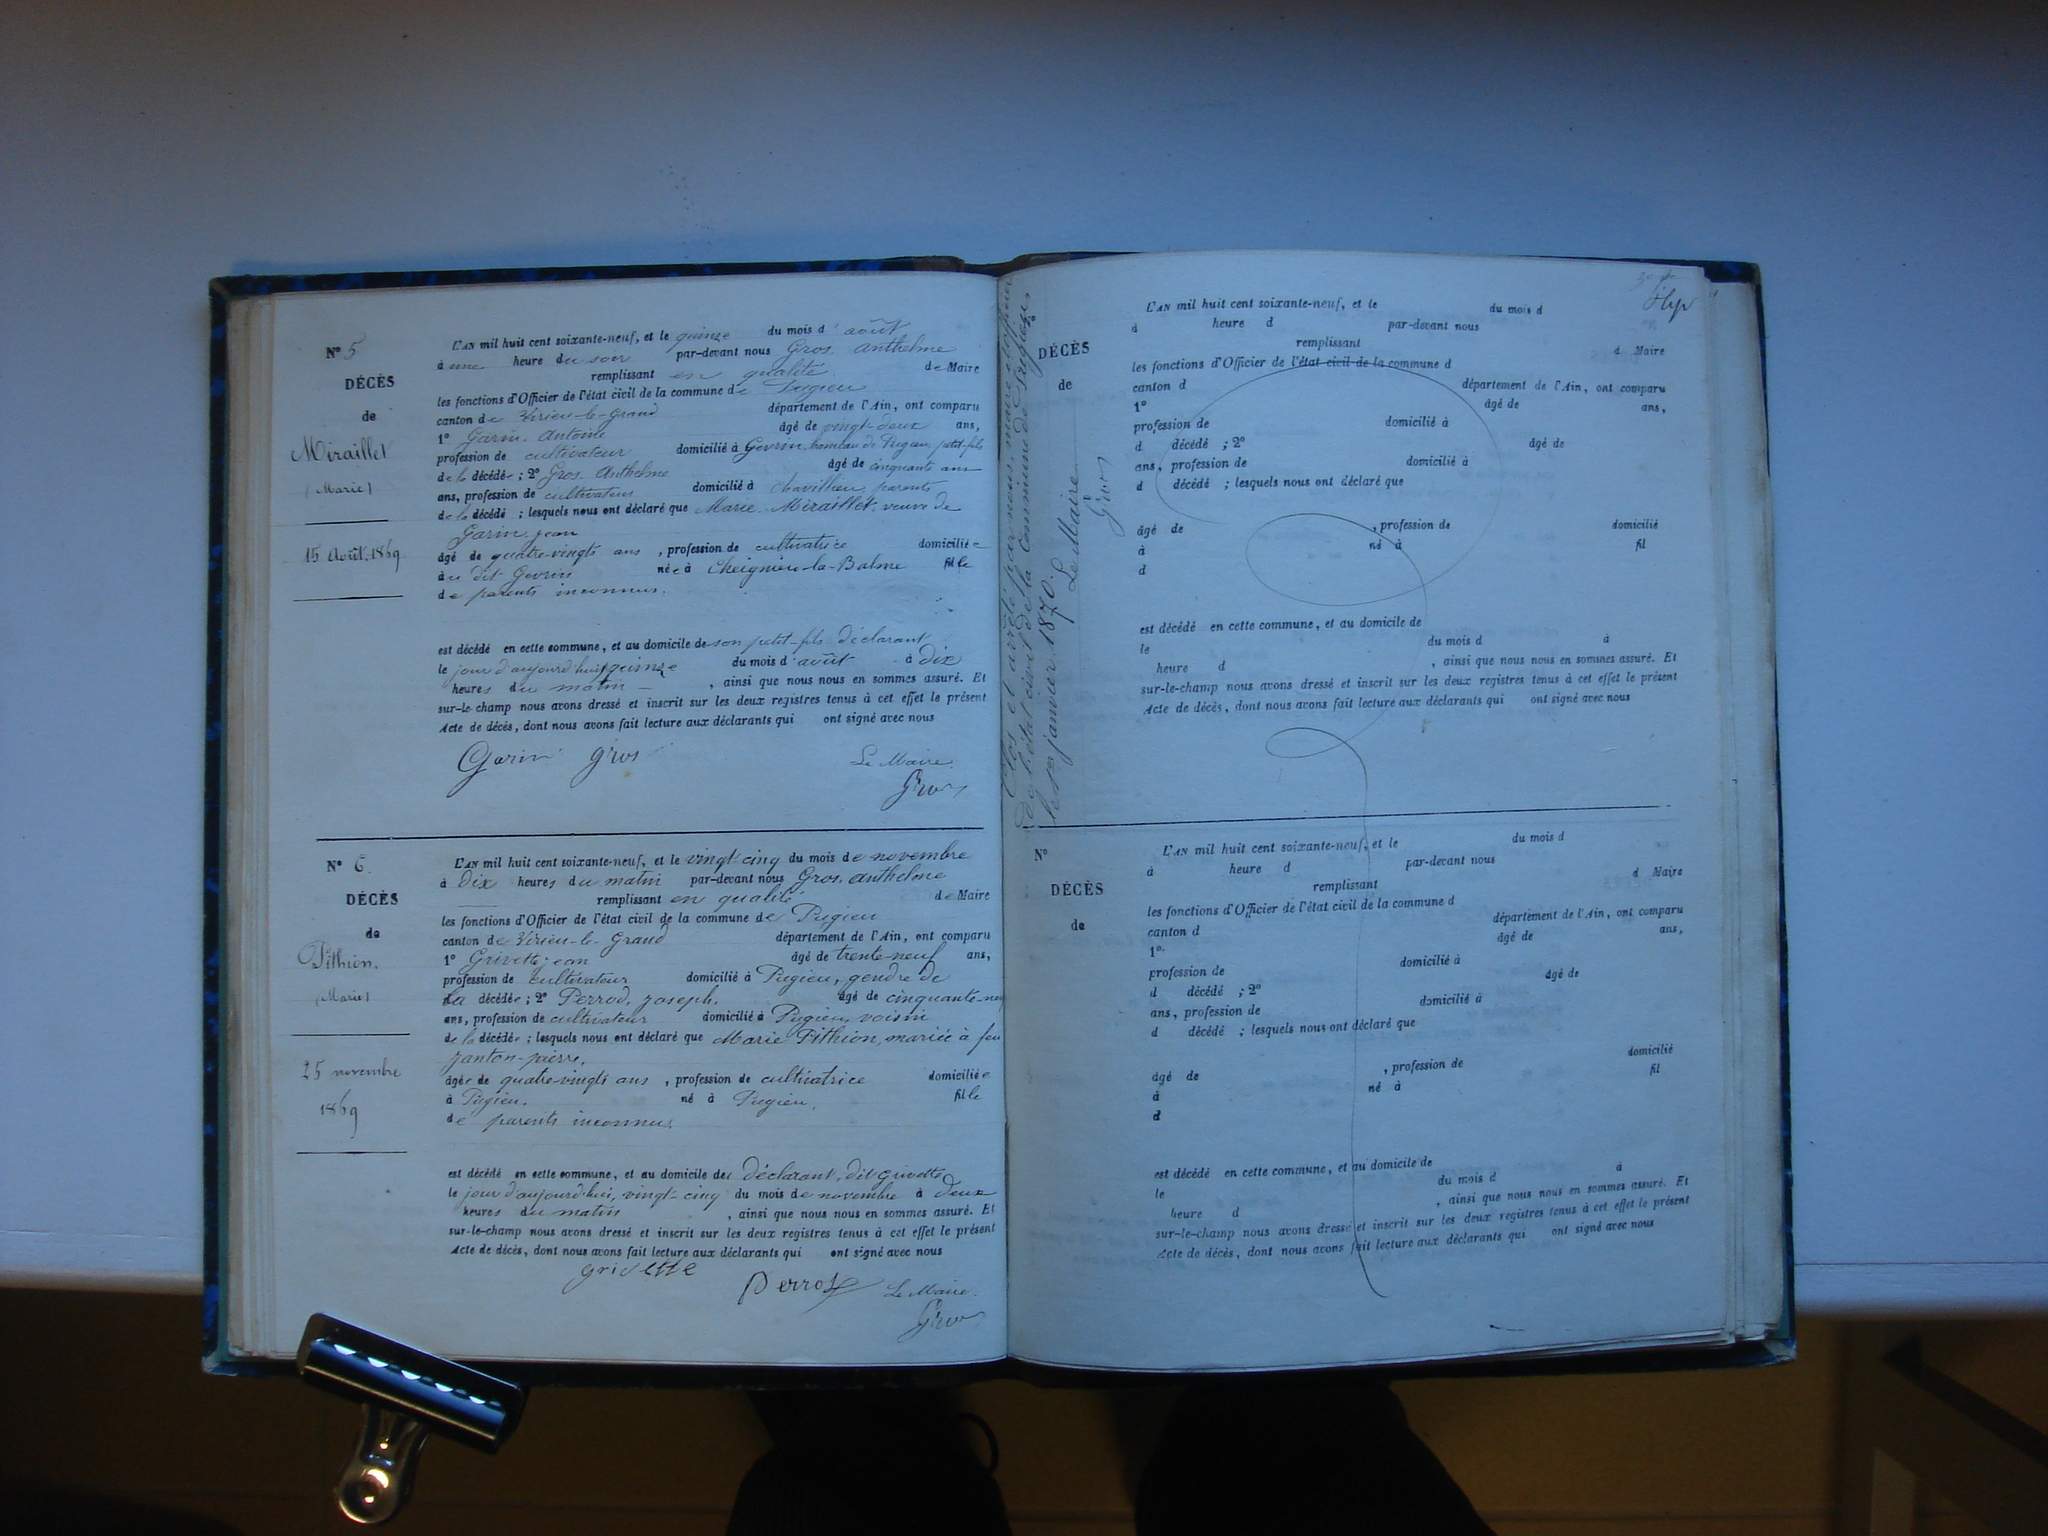 N° 5
DÉCÈS
de
Miraillet
(Marie)
15 Août 1869
L'AN mil huit cent soixante-neuf, et le quinze du mois d'août
à une heure du soir par-devant nous Gros, Anthelme
remplissant en qualité de Maire
les fonctions d'Officier de l'état civil de la commune de Pugieu
canton de Virieu-le-Grand département de l'Ain, ont comparu
1° Garin, Antoine âgé de vingt-deux ans,
profession de cultivateur domicilié à Gevrin, hameau de Pugieu, petit-fils
de la décédée ; 2° Gros, Anthelme âgé de cinquante ans
ans, profession de cultivateur domicilié à parents
de la décédée ; lesquels nous ont déclaré que Marie Miraillet, veuve de
Garin, jean
âgé de quatre-vingts ans, profession de cultivatrice domiciliée
à au dit Gevrin née à Cheignieu-la-Balme fille
de parents inconnus.
est décédé en cette commune, et au domicile de son petit-fils déclarant
le jour d'aujourd'hui quinze du mois d'août à dix
heures du matin , ainsi que nous nous en sommes assuré. Et
sur-le-champ nous avons dressé et inscrit sur les deux registres tenus à cet effet le présent
Acte de décès, dont nous avons fait lecture aux déclarants qui ont signé avec nous
Garin Gros Le Maire
Gros
N° 6.
DÉCÈS
de
Pithion,
(Marie)
25 novembre
1869
L'AN mil huit cent soixante-neuf, et le vingt-cinq du mois de novembre
à dix heures du matin par-devant nous Gros, Anthelme
remplissant en qualité de Maire
les fonctions d'Officier de l'état civil de la commune de Pugieu
canton de Virieu-le-Grand département de l'Ain, ont comparu
1° Grivette, jean âgé de trente-neuf ans,
profession de cultivateur domicilié à Pugieu, gendre de
la décédée ; 2° Perrod, joseph, âgé de cinquante-neuf
ans, profession de cultivateur domicilié à Pugieu, voisin
de la décédée ; lesquels nous ont déclaré que Marie Pithion, mariée à feu
Janton-pierre,
âgée de quatre-vingts ans, profession de cultivatrice domiciliée
à Pugieu, né à Pugieu, fille
de parents inconnus.
est décédé en cette commune, et au domicile du déclarant, dit grivette
le jour d'aujourd'hui, vingt-cinq du mois de novembre à deux
heures du matin , ainsi que nous nous en sommes assuré. Et
sur-le-champ nous avons dressé et inscrit sur les deux registres tenus à cet effet le présent
Acte de décès, dont nous avons fait lecture aux déclarants qui ont signé avec nous
grivette Perrod Le Maire
Gros
Clos et arrêté par nous, maire, officier
de l'état civil de la Commune de Pugieu,
le 1er janvier 1870.
Le Maire
Gros
DÉCÈS
de
L'AN mil huit cent soixante-neuf, et le du mois d
à heure d par-devant nous
remplissant d Maire
les fonctions d'Officier de l'état civil de la commune d
canton d département de l'Ain, ont comparu
1° âgé de ans,
profession de domicilié à
d décédé ; 2° âgé de
ans, profession de domicilié à
d décédé ; lesquels nous ont déclaré que
âgé de , profession de domicilié
à né à fil
d
est décédé en cette commune, et au domicile de
le du mois d à
heure d , ainsi que nous nous en sommes assuré. Et
sur-le-champ nous avons dressé et inscrit sur les deux registres tenus à cet effet le présent
Acte de décès, dont nous avons fait lecture aux déclarants qui ont signé avec nous
N°
DÉCÈS
de
L'AN mil huit cent soixante-neuf, et le du mois d
à heure d par-devant nous
remplissant d Maire
les fonctions d'Officier de l'état civil de la commune d
canton d département de l'Ain, ont comparu
1° âgé de ans,
profession de domicilié à
d décédé ; 2° âgé de
ans, profession de domicilié à
d décédé ; lesquels nous ont déclaré que
âgé de , profession de domicilié
à né à fil
d
est décédé en cette commune, et au domicile de
le du mois d à
heure d , ainsi que nous nous en sommes assuré. Et
sur-le-champ nous avons dressé et inscrit sur les deux registres tenus à cet effet le présent
Acte de décès, dont nous avons fait lecture aux déclarants qui ont signé avec nous